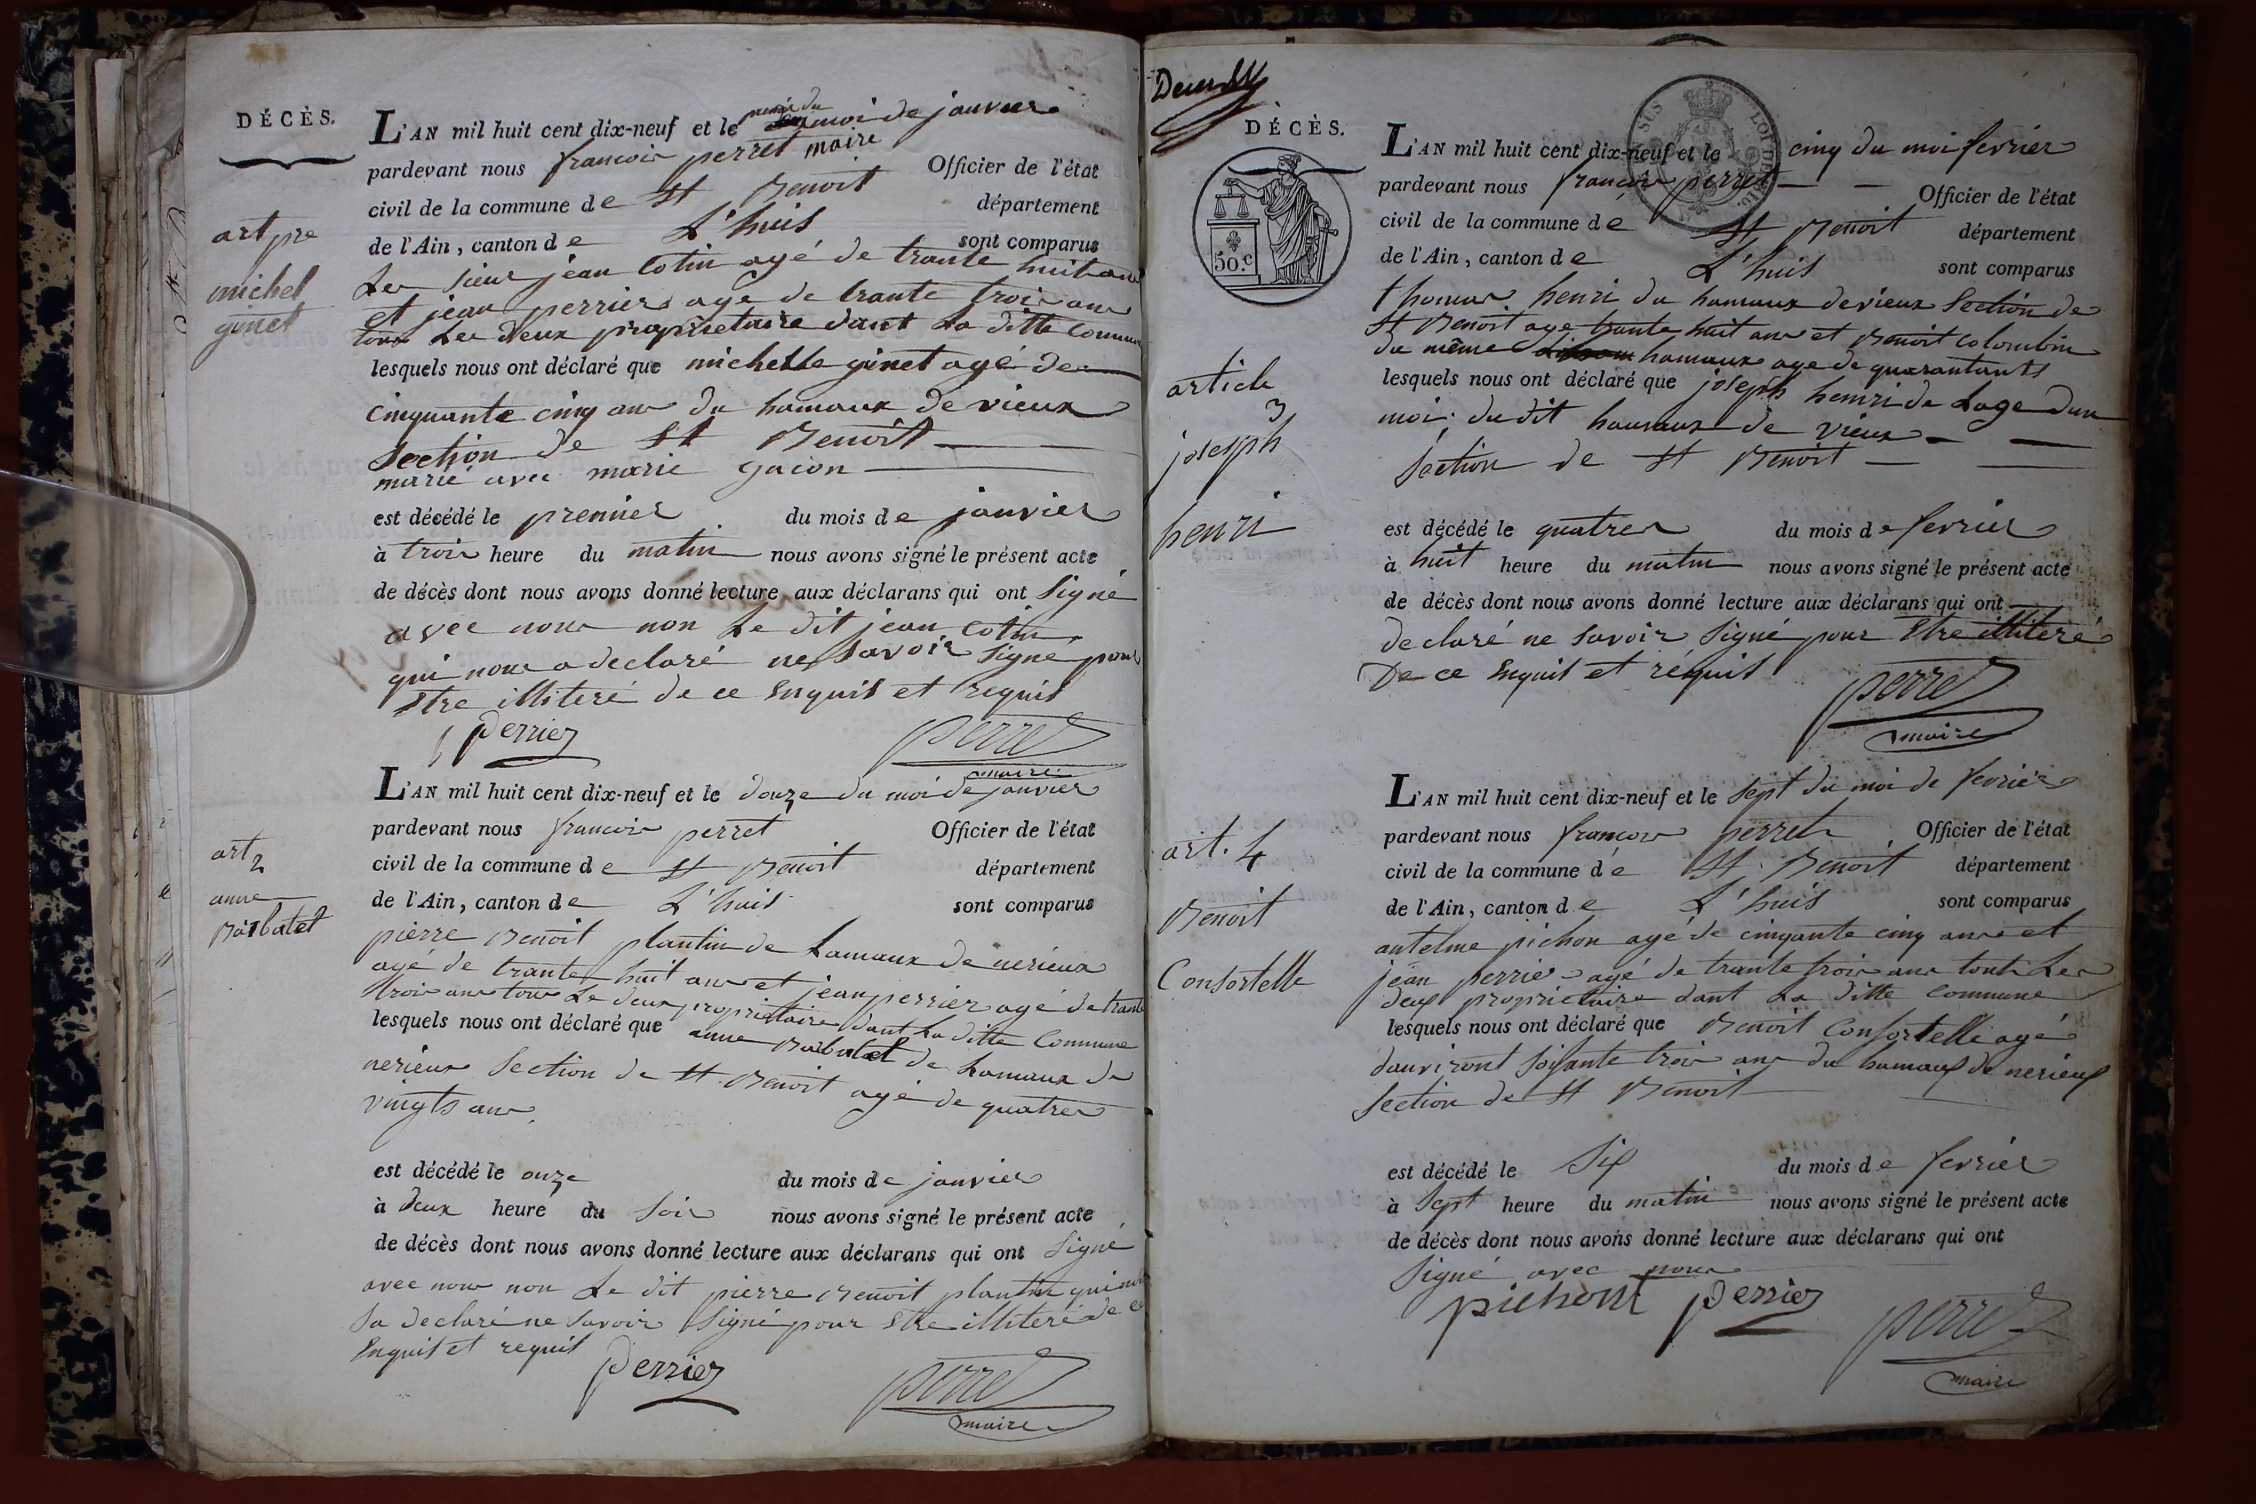 DÉCÈS.
L'AN mil huit cent dix-neuf et le premié du moi de janvier
pardevant nous francois perret maire Officier de l'état
civil de la commune de St Benoit département
de l'Ain, canton de L'huis sont comparus
art pre
michel
ginet
Les sieur jean Cotin agé de trante huit ans
et jean perrier age de trante trois ans
tous Les deux proprietaire dant La ditte Commune
lesquels nous ont déclaré que michelle ginet agé de
cinquante cinq ans du hamaux de vieux
Section de St Benoit
marié avec marie gacon
est décédé le premier du mois de janvier
à trois heure du matin nous avons signé le présent acte
de décès dont nous avons donné lecture aux déclarans qui ont Signé
avec nous non Le dit jean Cotin
qui nous a declaré ne Savoir Signé pour
Etre illiteré de ce Enquis et requis
perrier perret
maire
L'AN mil huit cent dix-neuf et le douze du moi de janvier
pardevant nous francois perret Officier de l'état
civil de la commune de St Benoit département
de l'Ain, canton de L'huis sont comparus
art 2
anne
Barbatet
pierre Benoit plantin de hamaux de nerieux
agé de trante huit ans et jean perrier agé de trante
trois ans tous Le deux proprietaire dant La ditte Commune
lesquels nous ont déclaré que anne Barbatet de hamaux de
nerieux Section de St Benoit agé de quatres
vingts ans.
est décédé le onze du mois de janvier
à deux heure du Soir nous avons signé le présent acte
de décès dont nous avons donné lecture aux déclarans qui ont Signé
avec nous non Le dit pierre Benoit plantin qui nous
a declaré ne Savoir Signé pour Etre illiteré de ce
Enquis et requis
perrier perret
maire
DÉCÈS.
50.c
L'AN mil huit cent dix-neuf et le cinq du moi fevrier
pardevant nous francois perret Officier de l'état
civil de la commune dé St Benoit département
de l'Ain, canton de L'huis sont comparus
article
3
joseph
henri
thomas henri du hamaux de vieux Section de
St Benoit age trante huit ans et Benoit Colombin
du même hamaux age de quarantants
lesquels nous ont déclaré que joseph henri de Lage dun
moi. du dit hamaux de vieux
Section de St Benoit
est décédé le quatre du mois de fevrier
à huit heure du matin nous avons signé le présent acte
de décès dont nous avons donné lecture aux déclarans qui ont
declaré ne Savoir Signé pour Etre illiteré
De ce Enquis et réquis
perret
maire
L'AN mil huit cent dix-neuf et le Sept du moi de fevrier
pardevant nous francois perret Officier de l'état
civil de la commune dé St Benoit département
de l'Ain, canton de L'huis sont comparus
art. 4
Benoit
Consortelle
antelme pichon agé de cinqante cinq ans et
jean perrier agé de trante trois ans tout Les
deux proprietaire dant La ditte Commune
lesquels nous ont déclaré que Benoit Consortelle agé
danviront Soisante trois ans du hamaux de nerieux
Section de St Benoit
est décédé le Six du mois de fevrier
à Sept heure du matin nous avons signé le présent acte
de décès dont nous avons donné lecture aux déclarans qui ont
Signé avec nous
pichont perrier perret
maire